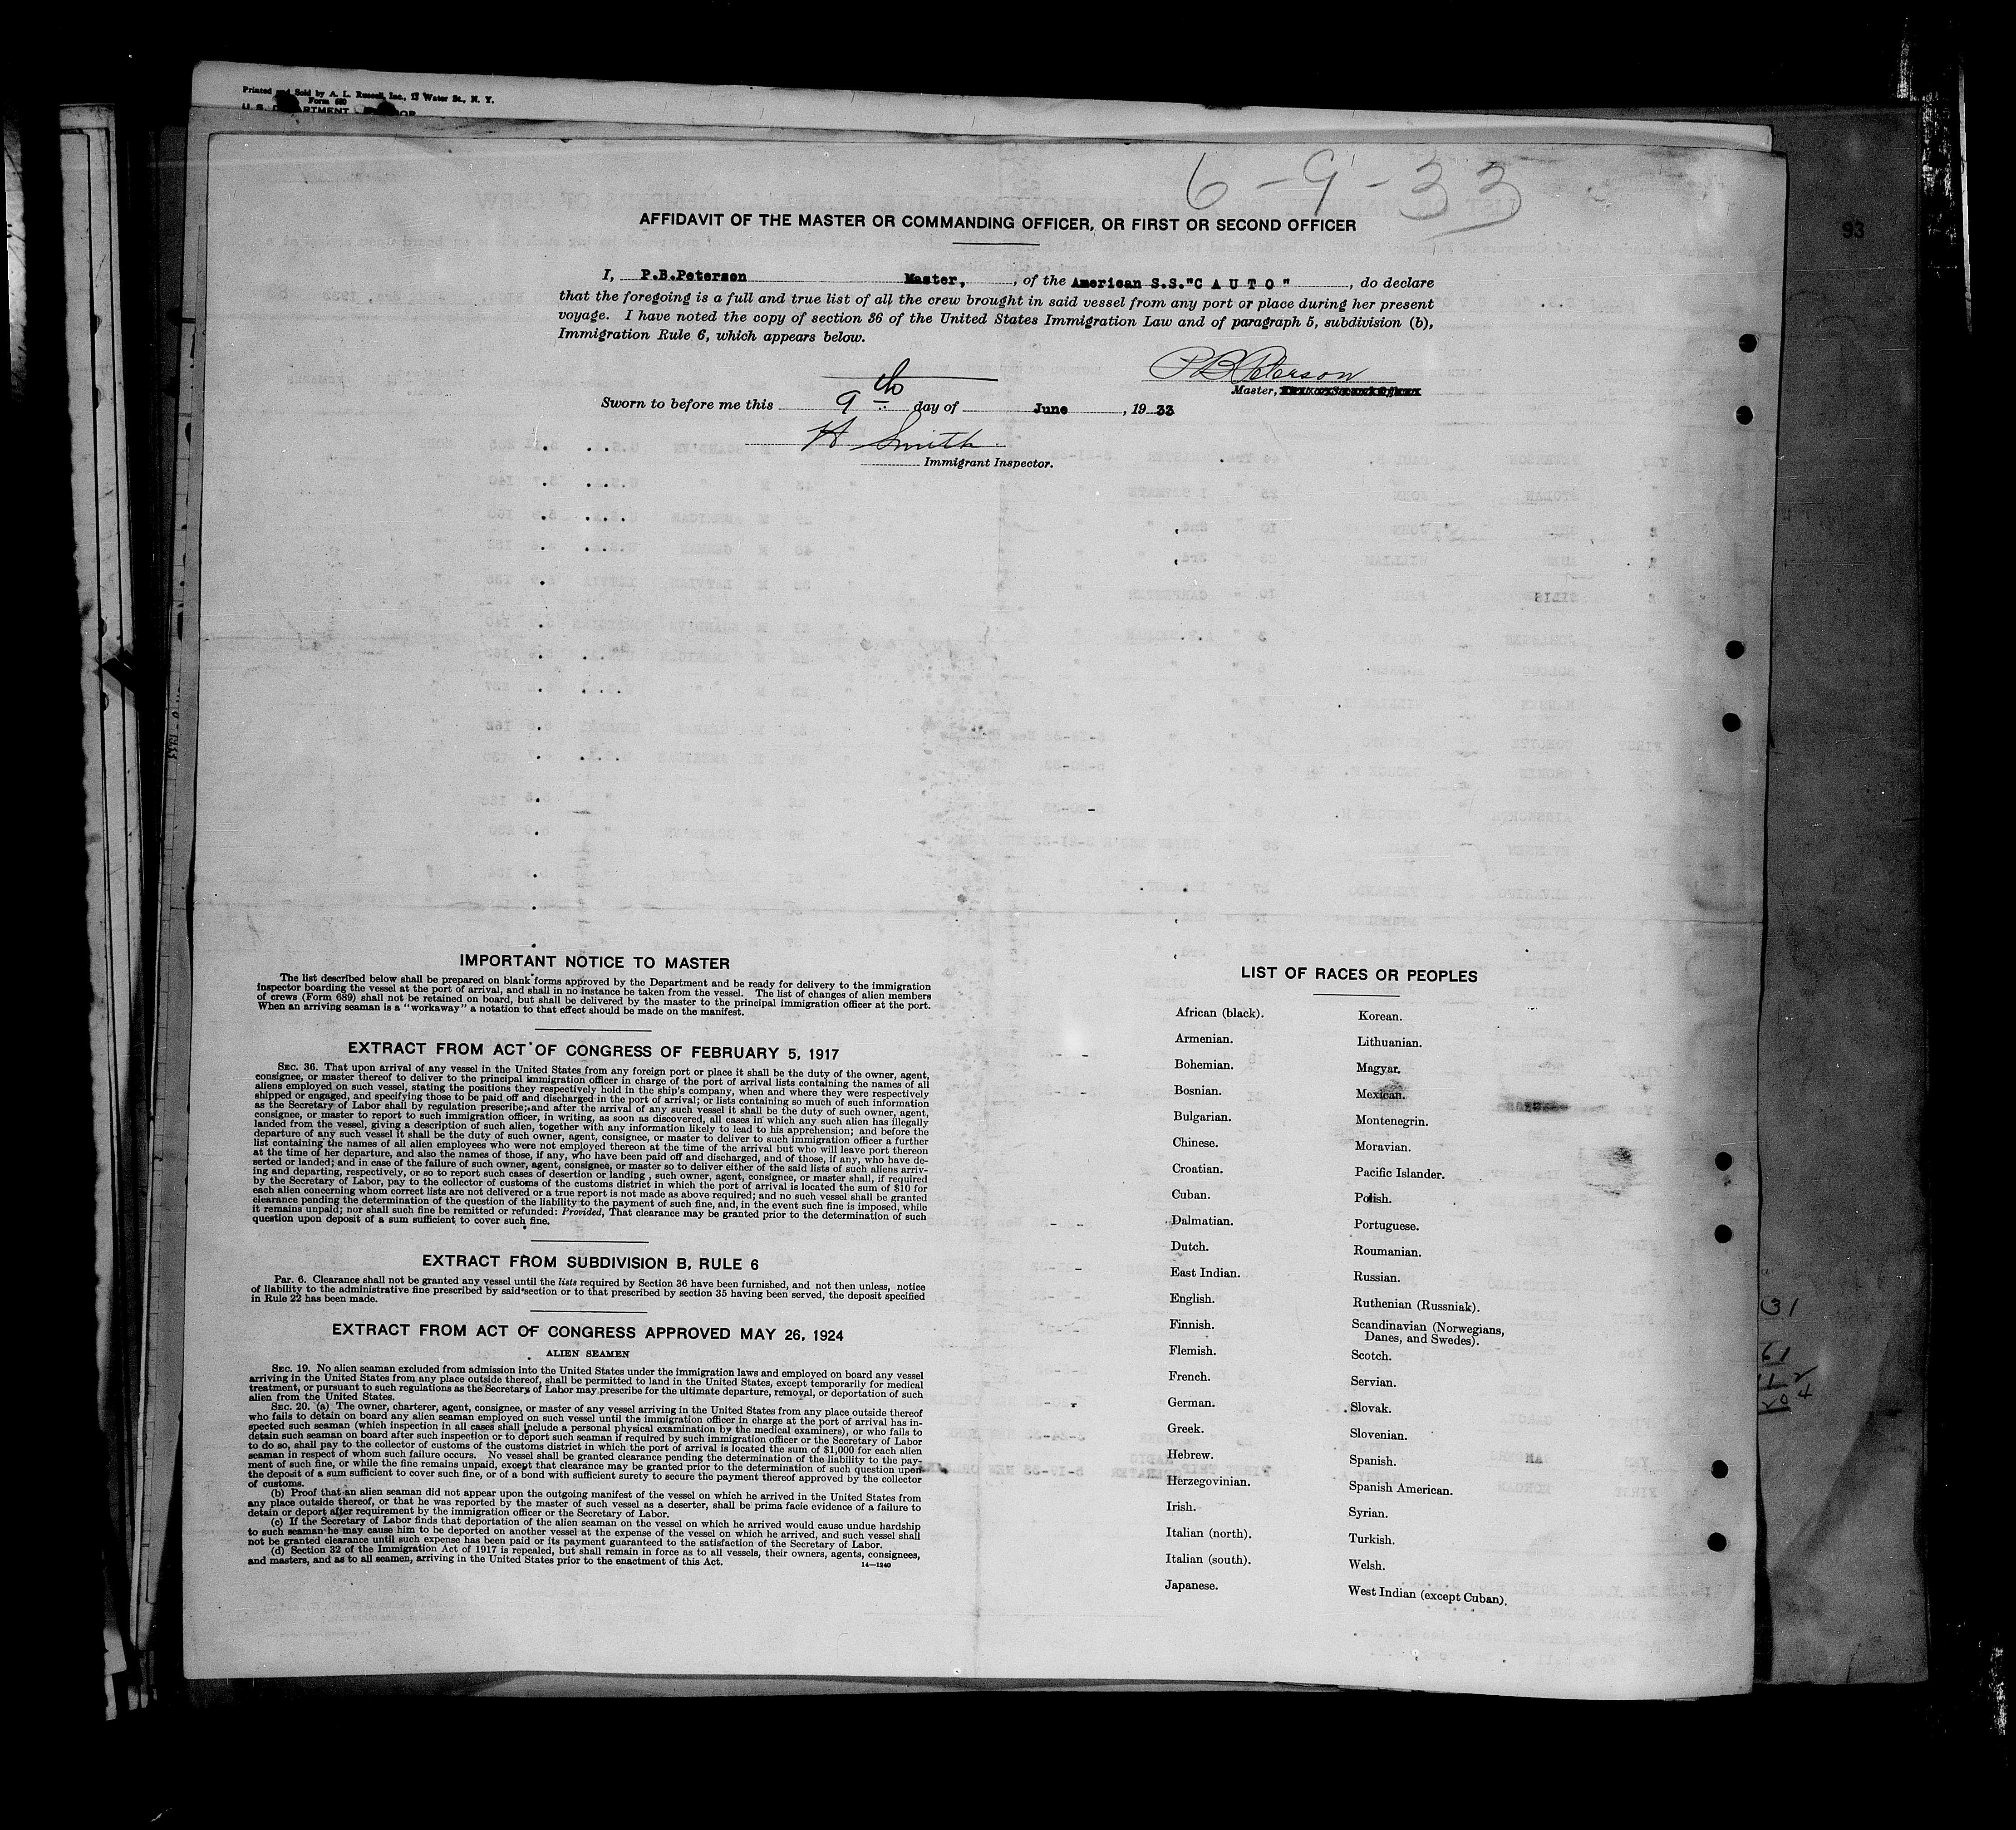 Printed and Sold by A. L. Russell, Inc., 17 Water St., N. Y.
Form 680
U.S. DEPARTMENT LABOR
6-9-33
93
AFFIDAVIT OF THE MASTER OR COMMANDING OFFICER, OR FIRST OR SECOND OFFICER
I, P.B.Peterson Master, , of the American S.S."C A U T O" , do declare
that the foregoing is a full and true list of all the crew brought in said vessel from any port or place during her present
voyage. I have noted the copy of section 36 of the United States Immigration Law and of paragraph 5, subdivision (b),
Immigration Rule 6, which appears below.
P B Peterson
Master,
Sworn to before me this 9th day of June , 19 33
H Smith
Immigrant Inspector.
IMPORTANT NOTICE TO MASTER
The list described below shall be prepared on blank forms approved by the Department and be ready for delivery to the immigration
inspector boarding the vessel at the port of arrival, and shall in no instance be taken from the vessel. The list of changes of alien members
of crews (Form 689) shall not be retained on board, but shall be delivered by the master to the principal immigration officer at the port.
When an arriving seaman is a "workaway" a notation to that effect should be made on the manifest.
EXTRACT FROM ACT OF CONGRESS OF FEBRUARY 5, 1917
SEC. 36. That upon arrival of any vessel in the United States from any foreign port or place it shall be the duty of the owner, agent,
consignee, or master thereof to deliver to the principal immigration officer in charge of the port of arrival lists containing the names of all
aliens employed on such vessel, stating the positions they respectively hold in the ship's company, when and where they were respectively
shipped or engaged, and specifying those to be paid off and discharged in the port of arrival; or lists containing so much of such information
as the Secretary of Labor shall by regulation prescribe; and after the arrival of any such vessel it shall be the duty of such owner, agent,
consignee, or master to report to such immigration officer, in writing, as soon as discovered, all cases in which any such alien has illegally
landed from the vessel, giving a description of such alien, together with any information likely to lead to his apprehension; and before the
departure of any such vessel it shall be the duty of such owner, agent, consignee, or master to deliver to such immigration officer a further
list containing the names of all alien employees who were not employed thereon at the time of the arrival but who will leave port thereon
at the time of her departure, and also the names of those, if any, who have been paid off and discharged, and of those, if any, who have de-
serted or landed; and in case of the failure of such owner, agent, consignee, or master so to deliver either of the said lists of such aliens arriv-
ing and departing, respectively, or so to report such cases of desertion or landing , such owner, agent, consignee, or master shall, if required
by the Secretary of Labor, pay to the collector of customs of the customs district in which the port of arrival is located the sum of $10 for
each alien concerning whom correct lists are not delivered or a true report is not made as above required; and no such vessel shall be granted
clearance pending the determination of the question of the liability to the payment of such fine, and, in the event such fine is imposed, while
it remains unpaid; nor shall such fine be remitted or refunded: Provided, That clearance may be granted prior to the determination of such
question upon deposit of a sum sufficient to cover such fine.
EXTRACT FROM SUBDIVISION B, RULE 6
Par. 6. Clearance shall not be granted any vessel until the lists required by Section 36 have been furnished, and not then unless, notice
of liability to the administrative fine prescribed by said section or to that prescribed by section 35 having been served, the deposit specified
in Rule 22 has been made.
EXTRACT FROM ACT OF CONGRESS APPROVED MAY 26, 1924
ALIEN SEAMEN
SEC. 19. No alien seaman excluded from admission into the United States under the immigration laws and employed on board any vessel
arriving in the United States from any place outside thereof, shall be permitted to land in the United States, except temporarily for medical
treatment, or pursuant to such regulations as the Secretary of Labor may prescribe for the ultimate departure, removal, or deportation of such
alien from the United States.
SEC. 20. (a) The owner, charterer, agent, consignee, or master of any vessel arriving in the United States from any place outside thereof
who fails to detain on board any alien seaman employed on such vessel until the immigration officer in charge at the port of arrival has in-
spected such seaman (which inspection in all cases shall include a personal physical examination by the medical examiners), or who fails to
detain such seaman on board after such inspection or to deport such seaman if required by such immigration officer or the Secretary of Labor
to do so, shall pay to the collector of customs of the customs district in which the port of arrival is located the sum of $1,000 for each alien
seaman in respect of whom such failure occurs. No vessel shall be granted clearance pending the determination of the liability to the pay-
ment of such fine, or while the fine remains unpaid, except that clearance may be granted prior to the determination of such question upon
the deposit of a sum sufficient to cover such fine, or of a bond with sufficient surety to secure the payment thereof approved by the collector
of customs.
(b) Proof that an alien seaman did not appear upon the outgoing manifest of the vessel on which he arrived in the United States from
any place outside thereof, or that he was reported by the master of such vessel as a deserter, shall be prima facie evidence of a failure to
detain or deport after requirement by the immigration officer or the Secretary of Labor.
(c) If the Secretary of Labor finds that deportation of the alien seaman on the vessel on which he arrived would cause undue hardship
to such seaman he may cause him to be deported on another vessel at the expense of the vessel on which he arrived, and such vessel shall
not be granted clearance until such expense has been paid or its payment guaranteed to the satisfaction of the Secretary of Labor.
(d) Section 32 of the Immigration Act of 1917 is repealed, but shall remain in force as to all vessels, their owners, agents, consignees,
and masters, and as to all seamen, arriving in the United States prior to the enactment of this Act.
14—1240
LIST OF RACES OR PEOPLES
African (black).
Armenian.
Bohemian.
Bosnian.
Bulgarian.
Chinese.
Croatian.
Cuban.
Dalmatian.
Dutch.
East Indian.
English.
Finnish.
Flemish.
French.
German.
Greek.
Hebrew.
Herzegovinian.
Irish.
Italian (north).
Italian (south).
Japanese.
Korean.
Lithuanian.
Magyar.
Mexican.
Montenegrin.
Moravian.
Pacific Islander.
Polish.
Portuguese.
Roumanian.
Russian.
Ruthenian (Russniak).
Scandinavian (Norwegians,
Danes, and Swedes).
Scotch.
Servian.
Slovak.
Slovenian.
Spanish.
Spanish American.
Syrian.
Turkish.
Welsh.
West Indian (except Cuban).
31
61